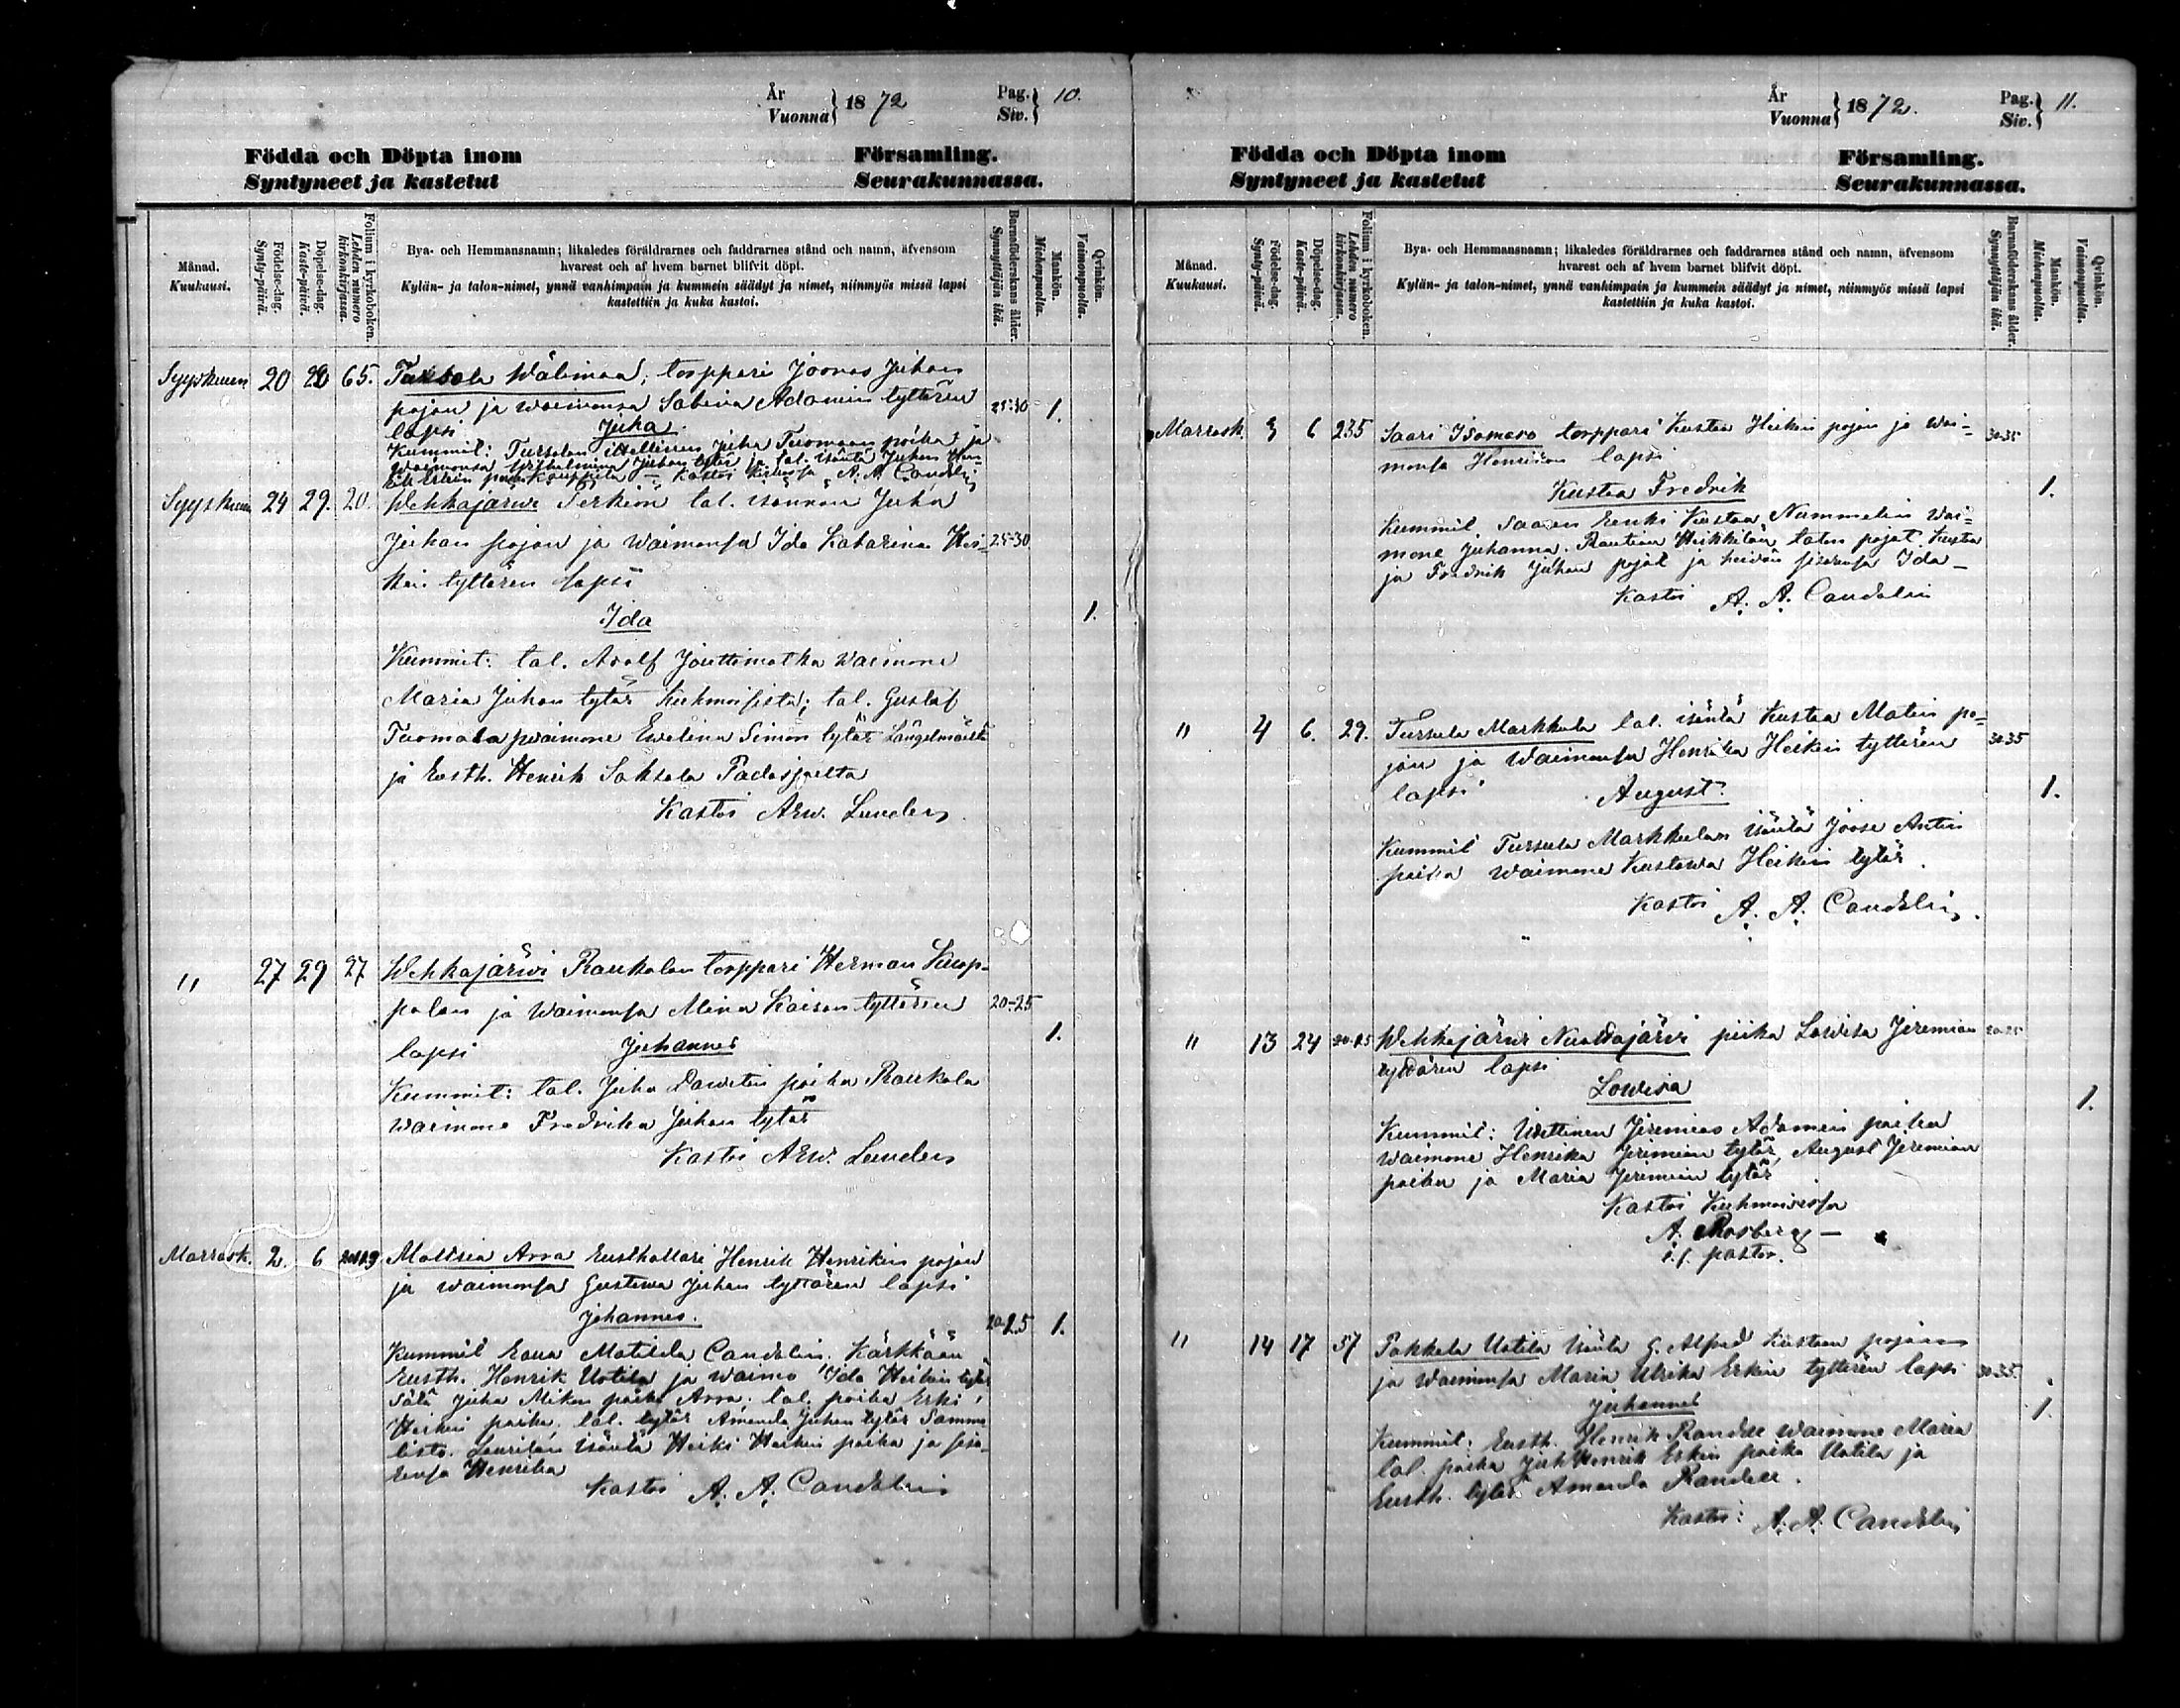 År
Vuonna } 1872
Pag.
Siv. } 10.
Födda och Döpta inom Församling.
Syntyneet ja kastetut Seurakunnassa.
Månad.
Kuukausi.
Födelse-dag.
Synty-päivä.
Döpelse-dag.
Kaste-päivä.
Folium i kyrkoboken.
Lehden numero
kirkonkirjassa.
Bya- och Hemmansnamn; likaledes föräldrarnes och faddrarnes stånd och namn, äfvensom
hvarest och af hvem barnet blifvit döpt.
Kylän- ja talon-nimet, ynnä vanhimpain ja kummein säädyt ja nimet, niinmyös missä lapsi
kastettiin ja kuka kastoi.
Barnaföderskans ålder.
Synnyttäjän ikä.
Mankön.
Miehenpuolta.
Qvinkön.
Vaimonpuolta.
Syyskuun 20 65. Wälimaa, torppari Joonas Juhan
pojan ja waimonsa Sabina Adamin tyttären 25-30 1.
lapsi Juha
Kummit: Tursolan itellinen Juha Tuomaan poika ja
waimonsa Wilhelmina Juhan tytär ja tal. isäntä Juhan
Erkin Kauppila – Kastoi Kirkossa A. A. Candelin
Syyskuun 24 29. 20. Wehkajärwi Perkiön tal. isännän Juha
Juhan pojan ja waimonsa Ida Katarina Hei- 25-30
kin tyttären lapsi
Ida 1.
Kummit: tal. Adolf Jouttimatka waimone
Maria Juhan tytär Kuhmoisista; tal. Gustaf
Tuomala waimone Ewelina Simon tytär Längelmäeltä
ja Eusth. Henrik Saksala Padasjoelta
Kastoi Arw. Lunden
" 27 29 27 Wehkajärwi Raukolan torppari Herman Kuop-
palan ja waimonsa Mina Kaisan tyttären 20-25
lapsi Juhannes 1.
Kummit: tal. Juha Dawitin poika Raukola
waimone Fredrika Juhan tytär
Kastoi Arw. Lunden
Marrask. 2. 6 Mattsia Arra Eusthollari Henrik Henrikin pojan
ja waimonsa Gustawa Juhan tyttären lapsi
Johannes. 20-25 1.
Kummit Matilda Candelin. Kärkkään
Eusth. Henrik Uotila ja waimo Ida Heikin tytär
Juha Mikon poika Arra, tal. poika Erki
Heikin poika, tal. tytär Amanda Juhan tytär Samma
listo. Laurilan isäntä Heiki Heikin poika ja sisa-
rensa Henrika
Kastoi A. A. Candelin
År
Vuonna } 1872.
Pag.
Siv. } 11.
Födda och Döpta inom Församling.
Syntyneet ja kastetut Seurakunnassa.
Månad.
Kuukausi.
Födelse-dag.
Synty-päivä.
Döpelse-dag.
Kaste-päivä.
Folium i kyrkoboken.
Lehden numero
kirkonkirjassa.
Bya- och Hemmansnamn; likaledes föräldrarnes och faddrarnes stånd och namn, äfvensom
hvarest och af hvem barnet blifvit döpt.
Kylän- ja talon-nimet, ynnä vanhimpain ja kummein säädyt ja nimet, niinmyös missä lapsi
kastettiin ja kuka kastoi.
Barnaföderskans ålder.
Synnyttäjän ikä.
Mankön.
Miehenpuolta.
Qvinkön.
Vaimonpuolta.
Marrask. 3 6 235 Saari Isomaso torppari Kustaa Heikin pojan ja wai= 30-35
monsa Henriikan lapsi
Kustaa Fredrik 1.
Kummit Saaren renki Kustaa Nummelin wai=
mone Juhanna. Rautian Heikkilän talon pojat Kustaa
ja Fredrik Juhan pojat ja heidän sisarensa Ida –
Kastoi A. A. Candelin
" 4 6. 29. Tursula Markkula tal. isäntä Kustaa Matin po=
jan ja waimonsa Henrika Heikin tyttären 30-35
lapsi August. 1.
Kummit Tursula Markkulan isäntä Joose Antin
poika waimone Kustawa Heikin tytär.
Kastoi A. A. Candelin.
" 13 24 Wehkajärwi piika Lowisa Jeremian 20-25
tyttären lapsi
Lowisa 1.
Kummit: Jeremias Adamin poika
waimone Henrika Jeremian tytär, August Jeremian
poika ja Maria Jeremian tytär
Kastoi Kuhmoisissa
A. Rosberg –
pastor.
" 14 17 57 Pakkala Uotila isäntä G. Alfred Kustaan pojan
ja waimonsa Maria Ulrika Erkin tyttären lapsi 30-35.
Juhannes 1.
Kummit: Eusth. Henrik Randee waimone Maria
tal. poika Juh Henrik Erkin poika Uotila ja
Eusth. tytär Amanda Randee.
Kastoi: A. A. Candelin